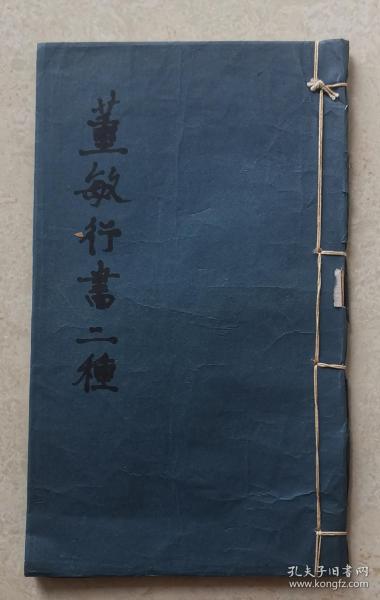 董敏行書二種
孔夫子旧书网
www.kongfz.com